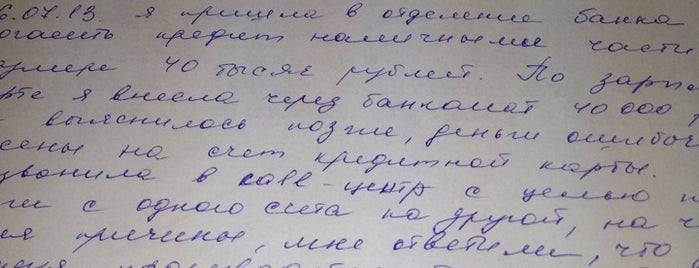 6.07.13. я пришла в отделение банка
огасить кредит наличными части
умере 40 тысяч рублей. По зарп
рте я внесла через банкомат 40 000 р
выяснилось позже, деньги ошибоч
сены на счет кредитной карты.
звонила в call-центр с целью п
ги с одного счета на другой, на ч
ея причине, мне ответили, что